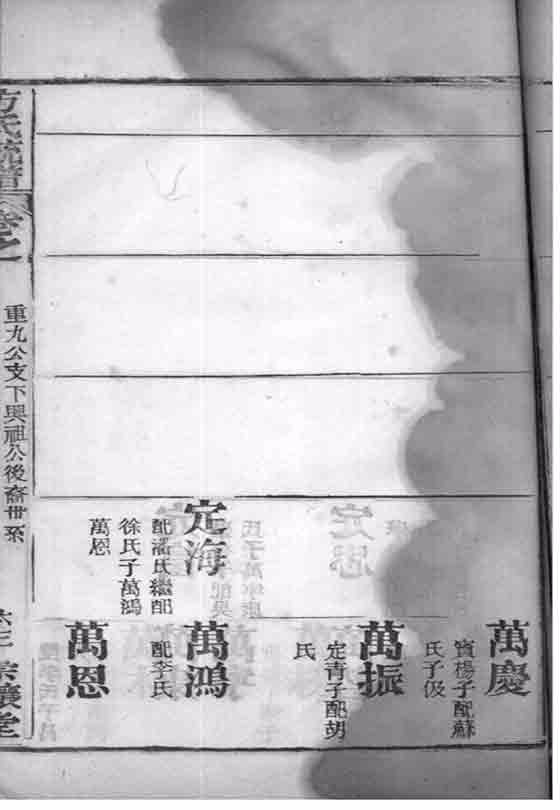 萬慶
賓楊子配蘇
氏子伋
萬振
定青子配胡
氏
定海
配潘氏繼配
徐氏子萬鴻
萬恩
萬鴻
配李氏
萬恩
方氏統譜
卷之
重九公支下興祖公後裔世系